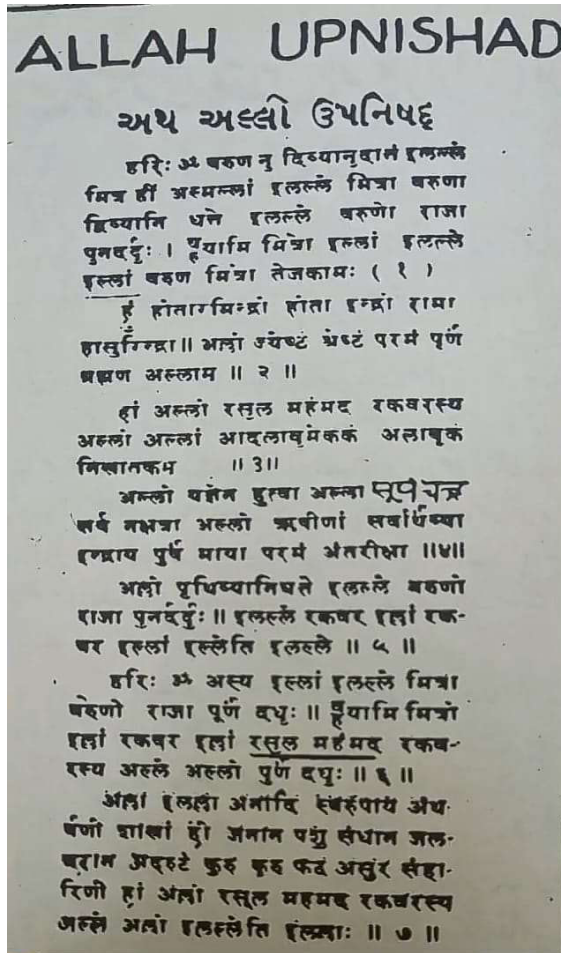 ALLAH UPNISHAD
અથ અલ્લો ઉપનિષદ્
हरिः ॐ वरुण नु दिव्यानुदानं इलल्लं
मित्र हीं अस्मल्लां इलल्लं मित्रा वरुणा
दिव्यानि धत्ते इलल्लं वरुणो राजा
पुनर्दर्दुः । हृयामि मित्रा इल्लां इलल्ले
इल्लां वरुण मित्रा तेजकामः ( १ )
होतारमिन्द्रां होता इन्द्रां रामा
हासुरिन्द्रा ॥ अलां ज्येष्टं श्रेष्टं परमं पूर्णं
ब्रह्मण अल्लाम ॥ २ ॥
हां अल्लो रसूल महंमद रकबरस्य
अल्लां अल्लां आदलाबूमेककं अलाबूकं
निखातकम ॥३॥
अल्लो यज्ञेन हुत्वा अल्ला सूर्य चन्द्र
सर्व नक्षत्रा अल्लो ऋषीणां सर्वदिव्या
इन्द्राय पुर्वं माया परमं अंतरीक्षा ॥४॥
अलो पृथिव्यानिधत्ते इलल्लं वरुणो
राजा पुनर्दर्दुः ॥ इलल्लं रकबर इलां रक-
बर इल्लां इल्लेति इलल्ले ॥ ५ ॥
हरिः ॐ अस्य इल्लां इलल्लं मित्रा
वरुणो राजा पूर्ण दधुः ॥ हृयामि मित्रो
इलां रकबर इलां रसूल महंमद रकब-
रस्य अल्लं अल्लो पुर्ण दधुः ॥ ६ ॥
अलां इलला अनादि स्वरुपाय अथ-
र्वणी शाखां ह्रीं जनान पशु संधान जल-
चरान अदृष्टं कुरु कुरु फट असुर संहा-
रिणी हां अलां रसूल महमद रकबरस्य
अल्लं अलां इलल्लेति इलल्लाः ॥ ७ ॥